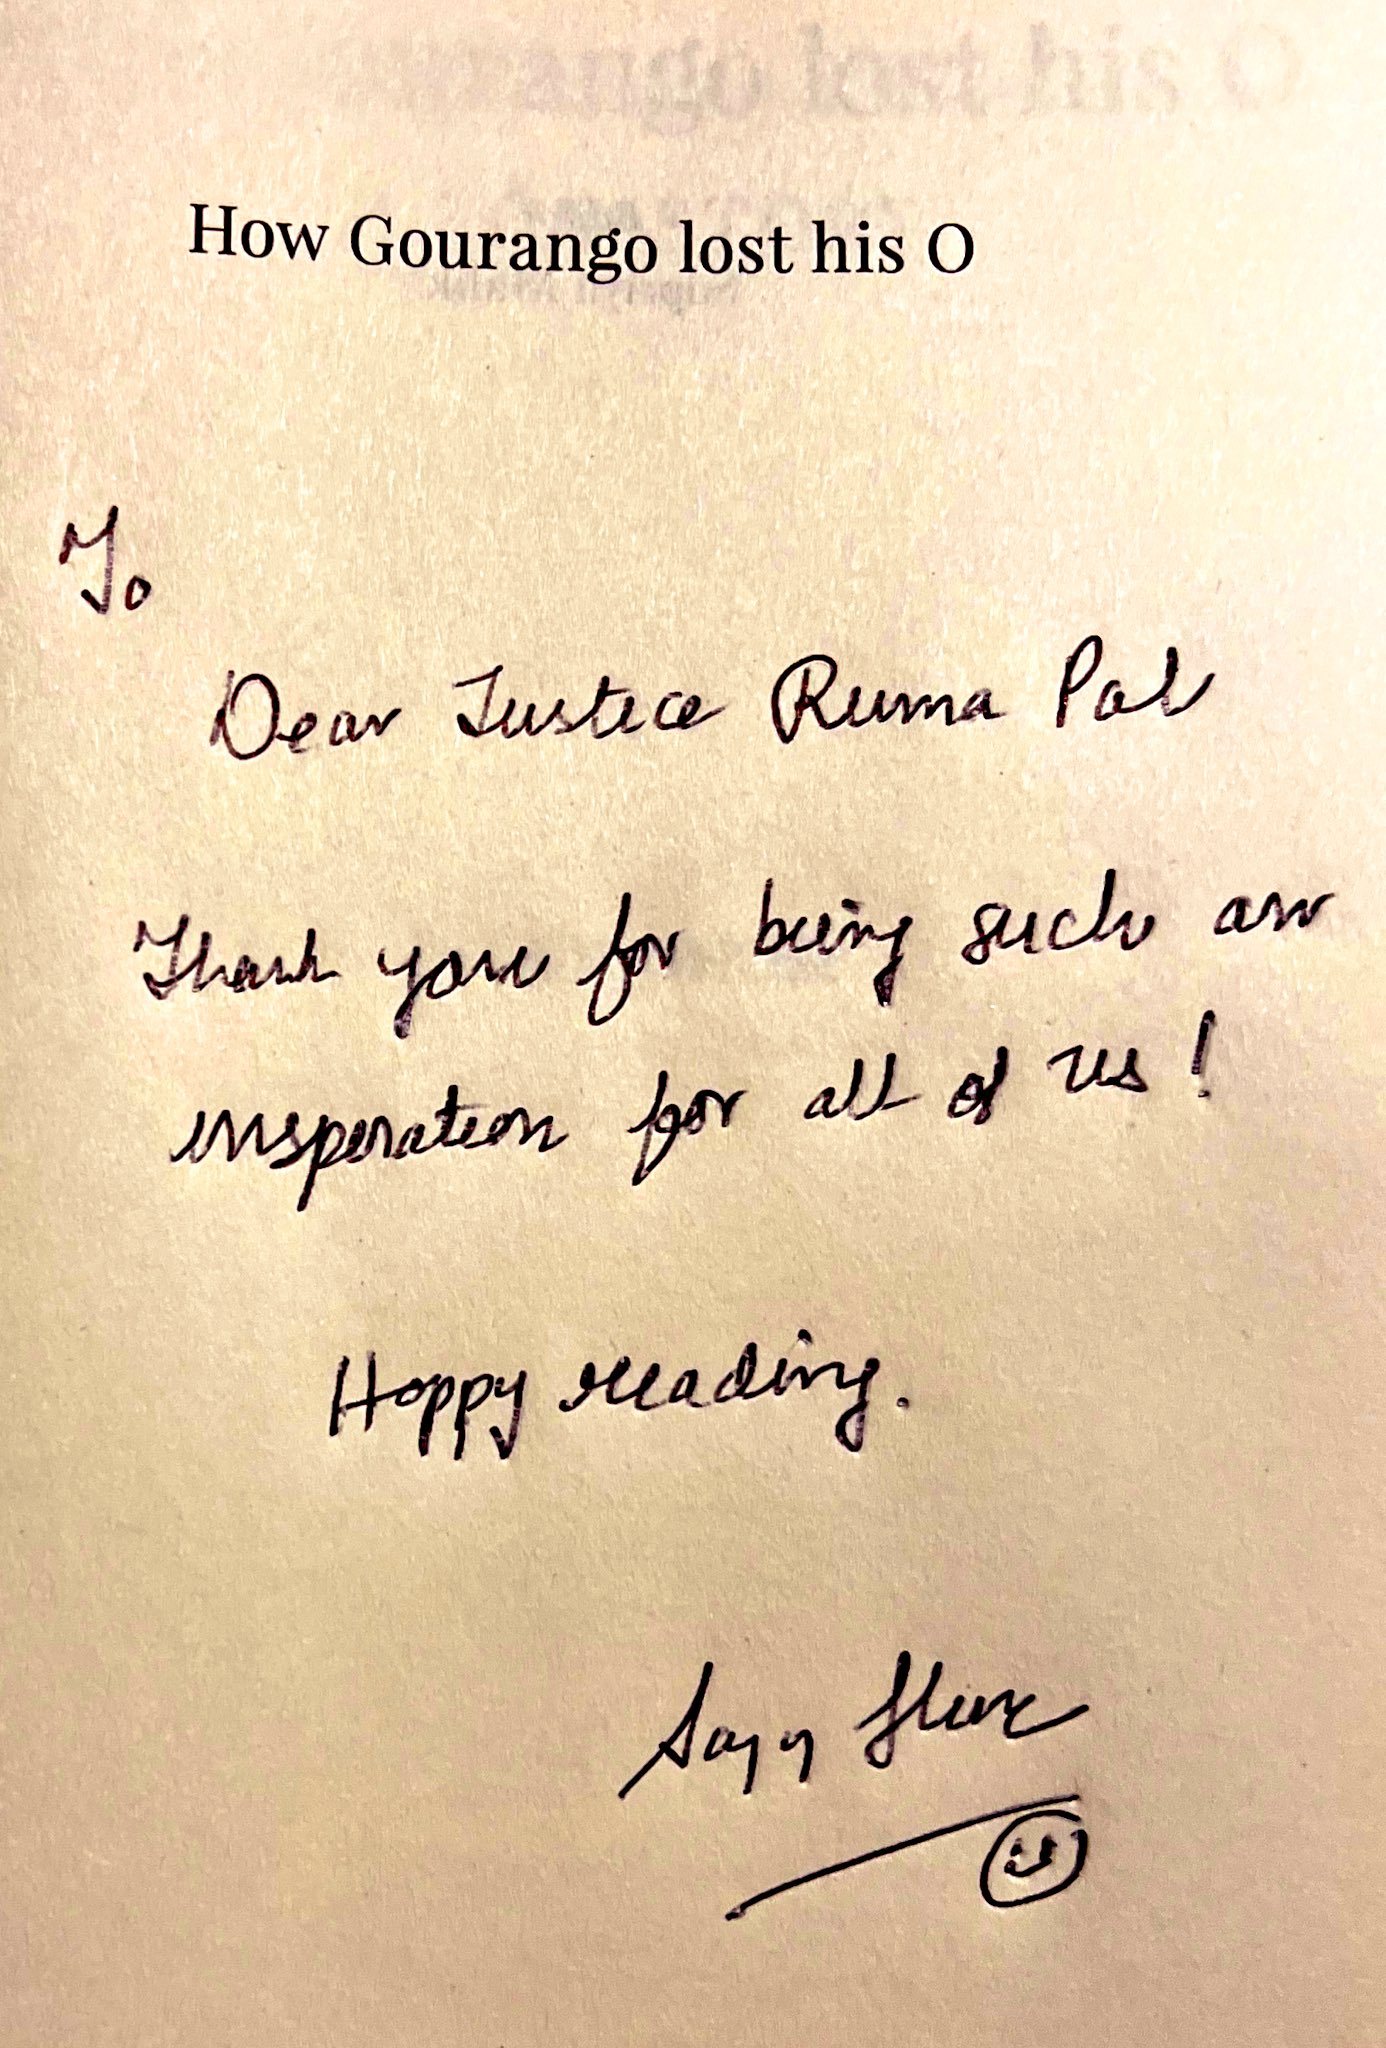 How Gourango lost his O
To
Dear Justice Ruma Pal
Thank you for being such an
inspiration for all of us!
Happy reading.